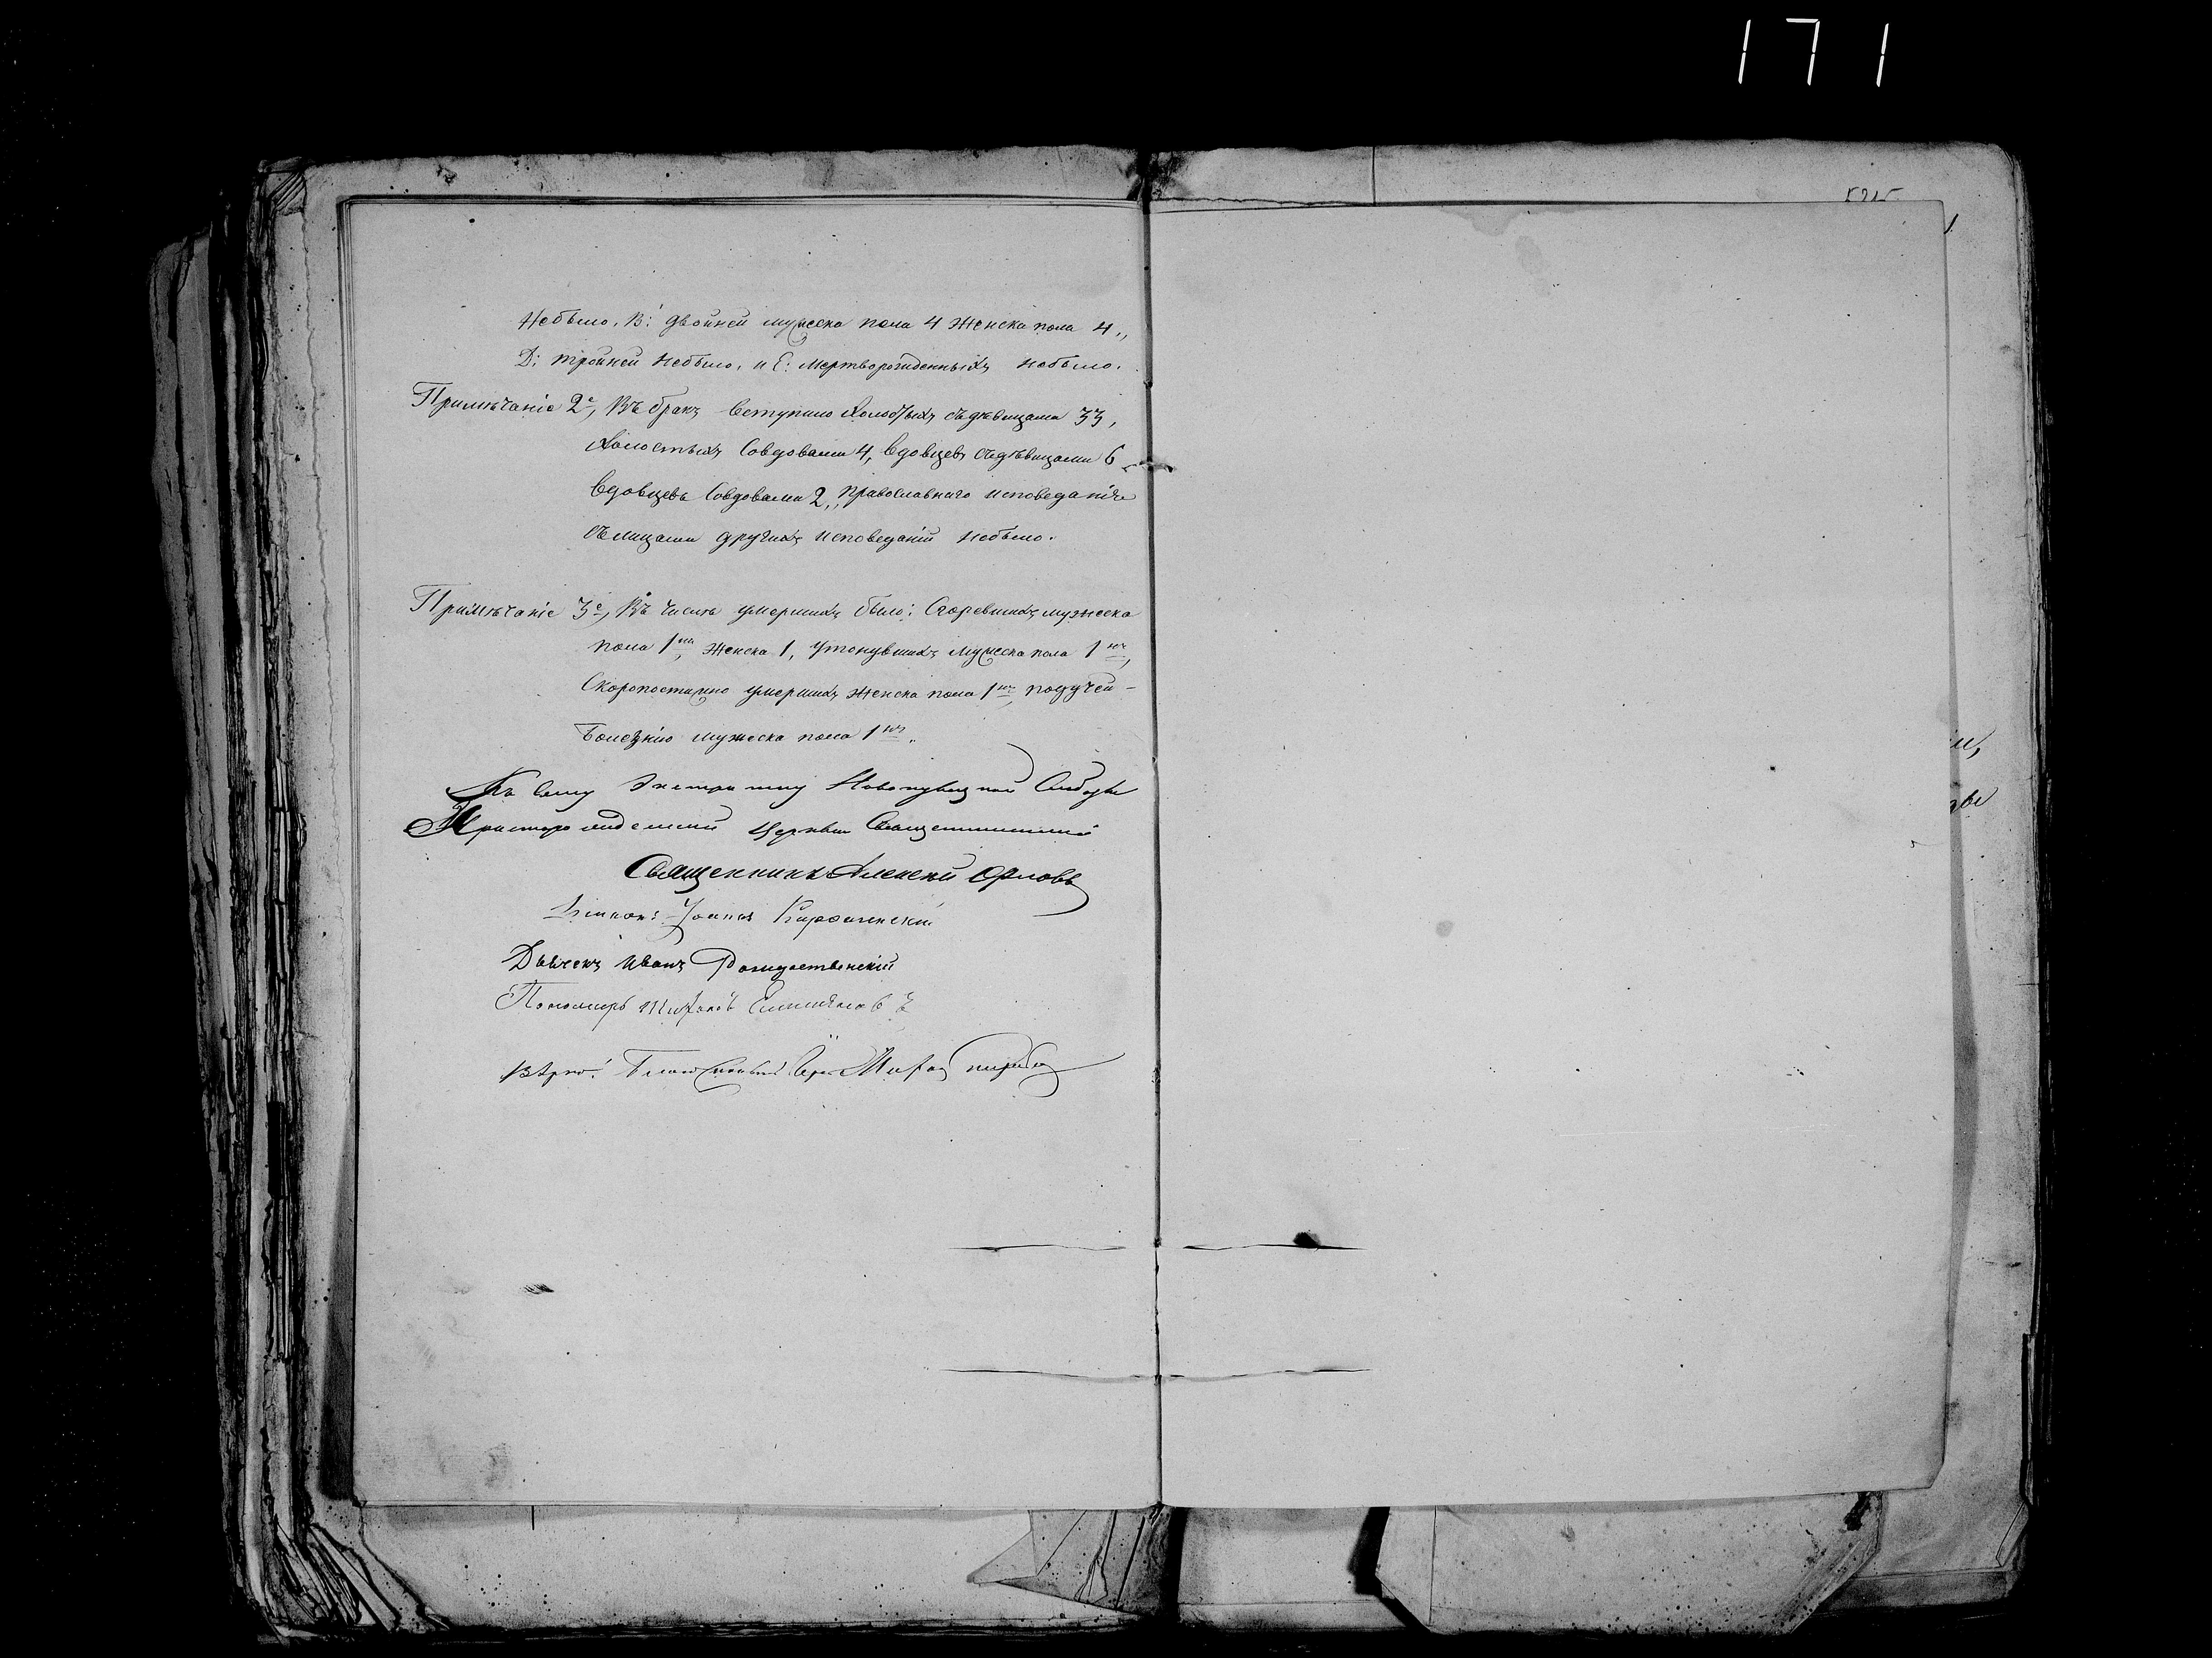 171
Небыло, В: двойней мужеска пола 4 Женска пола 4,,
Д: тройней Небыло, и Е: Мертворожденныхъ небыло.
Примѣчаніе 2е, Въ бракъ вступило Холостыхъ съдѣвицами 33,
Холостыхъ Совдовами 4, Вдовцевъ съдѣвицами 6
Вдовцевъ Совдовами 2,, Православнаго исповеданія
съ лицами другихъ исповеданій небыло.
Примѣчаніе 3е, Въ числѣ умершихъ было: Сгоревшихъ мужеска
пола 1нъ, Женска 1, Утонувшихъ мужеска пола 1нъ,
Скоропостижно умершихъ Женска пола 1на, подучей-
болезнію мужеска пола 1нъ.
Къ Сему Экстракту
Христорождественской Церкви
Священникъ Алексей Орловъ
Іоаннъ
Дьячекъ Иванъ Рождественскій
Пономарь
Вѣрно: